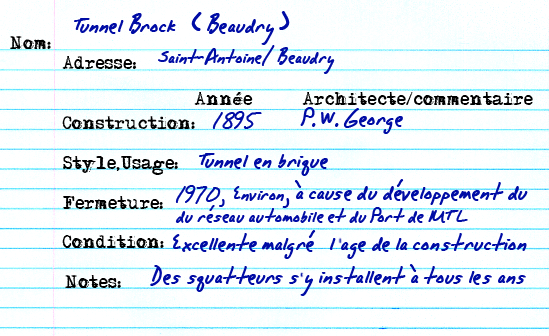 Nom: Tunnel Brock (Beaudry)
Adresse: Saint-Antoine/Beaudry
Année Architecte/commentaire
Construction: 1895 P.W. George
Style,Usage: Tunnel en brique
Fermeture: 1970, Environ, à cause du développement du
du réseau automobile et du Port de MTL
Condition: Excellente malgré l'age de la construction
Notes: Des squatteurs s'y installent à tous les ans